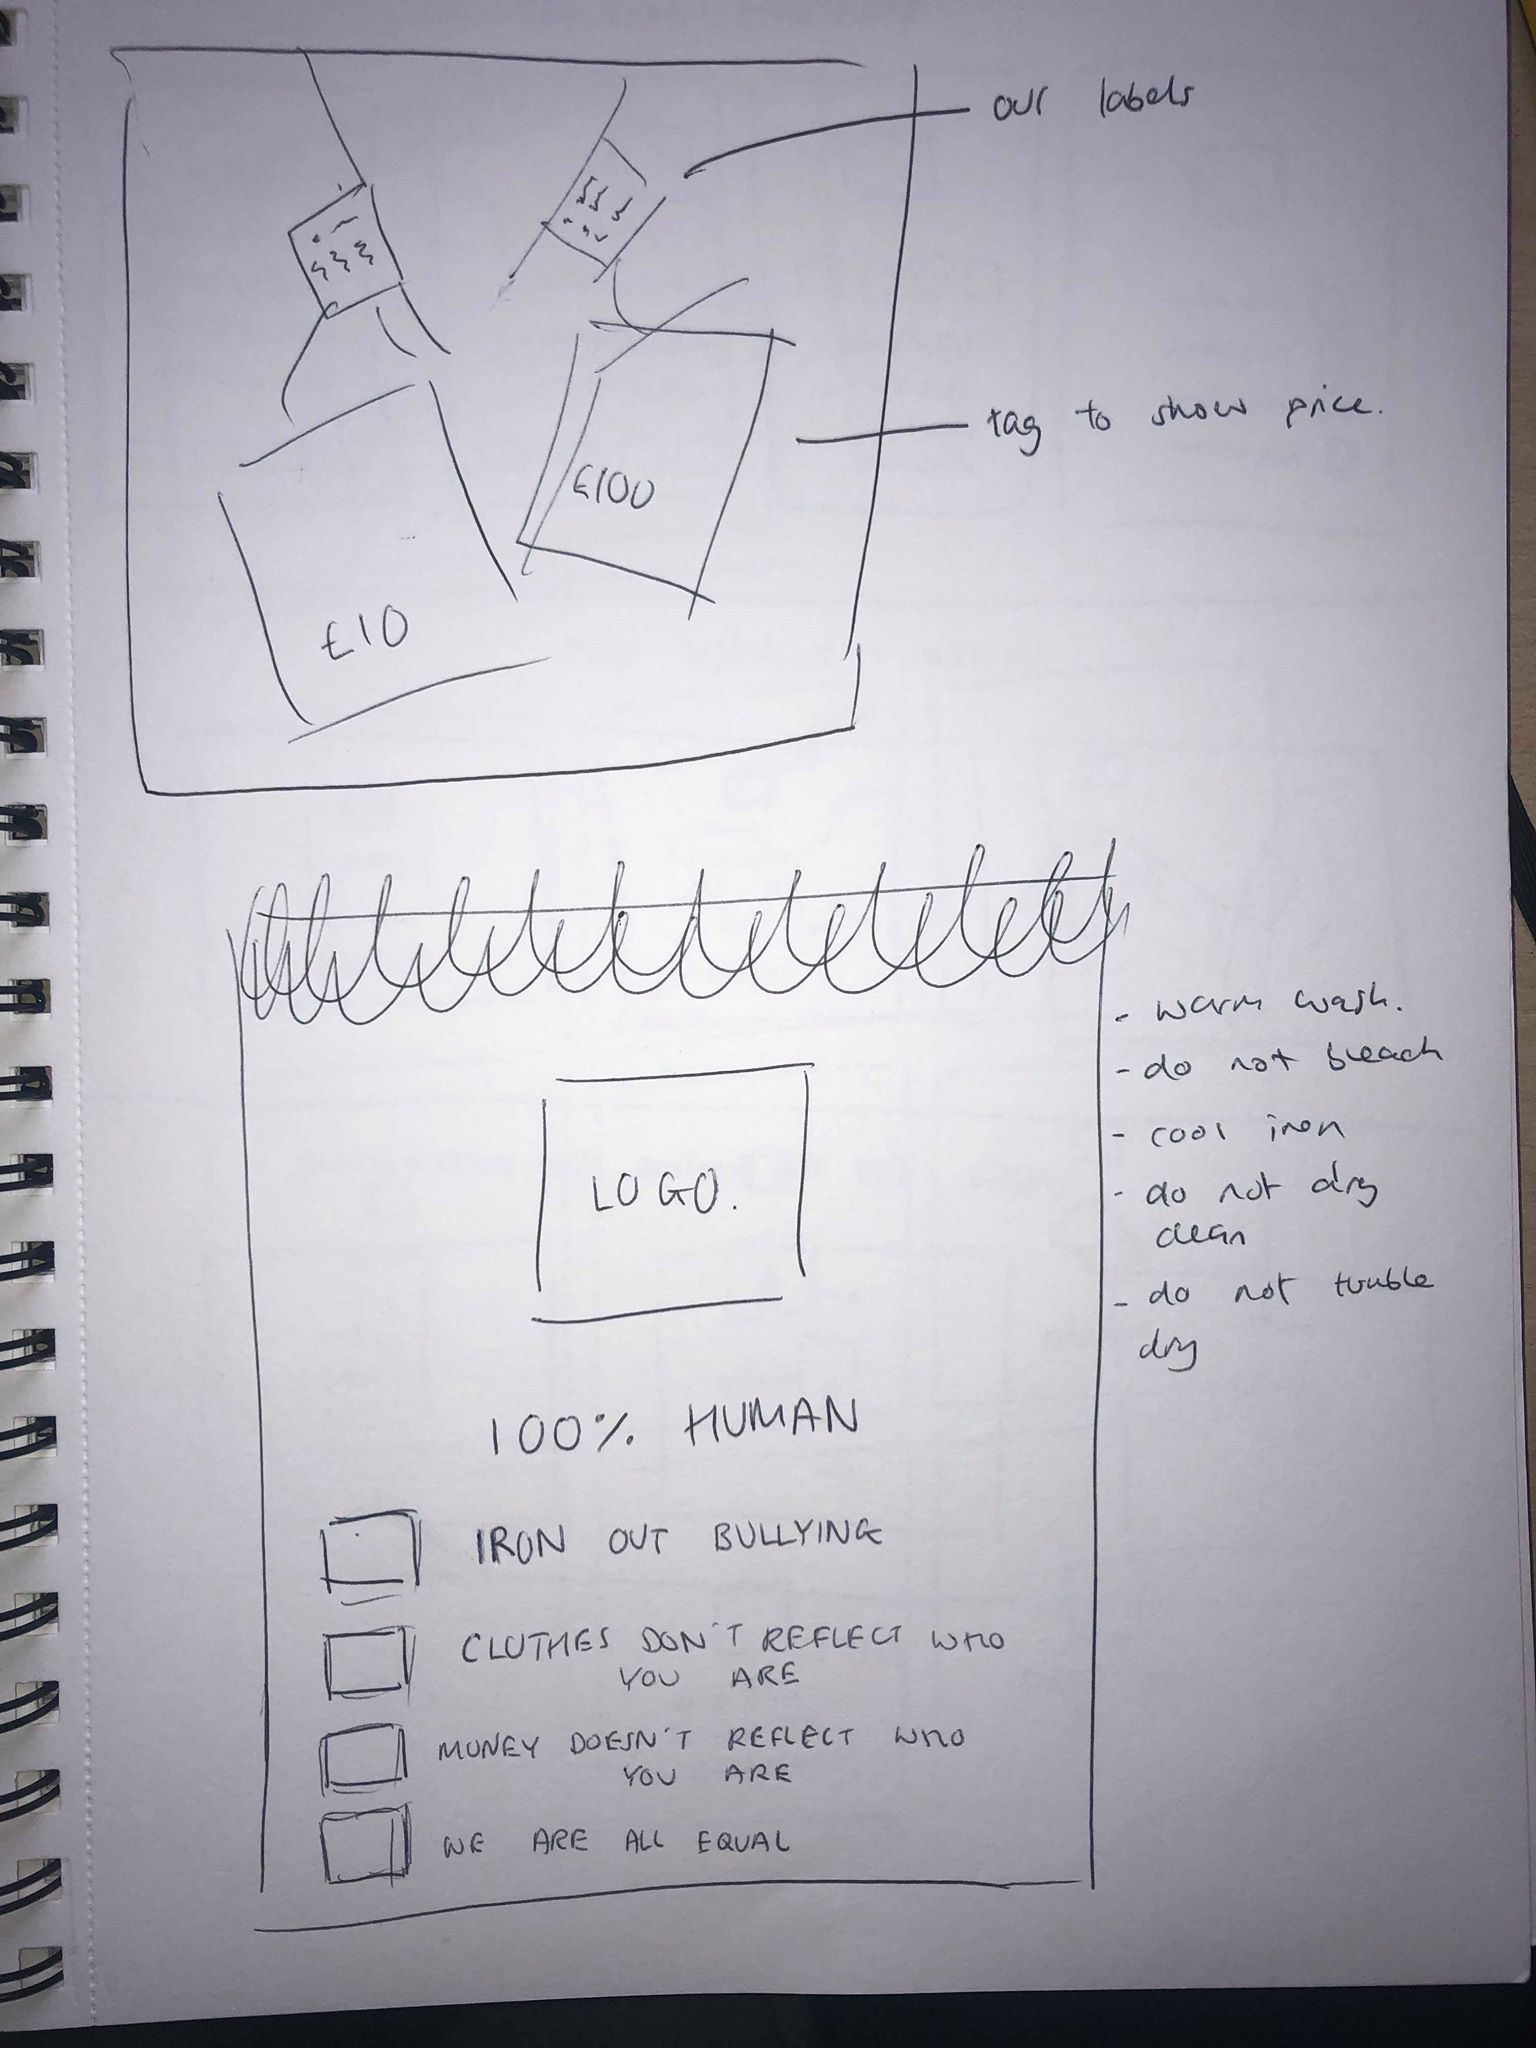 our labels
tag to show price.
£100
£10
- warm wash.
- do not bleach
- cool iron
- do not dry
clean
- do not tumble
dry
LOGO.
100% HUMAN
IRON OUT BULLYING
CLOTHES DON'T REFLECT WHO
YOU ARE
MONEY DOESN'T REFLECT WHO
YOU ARE
WE ARE ALL EQUAL